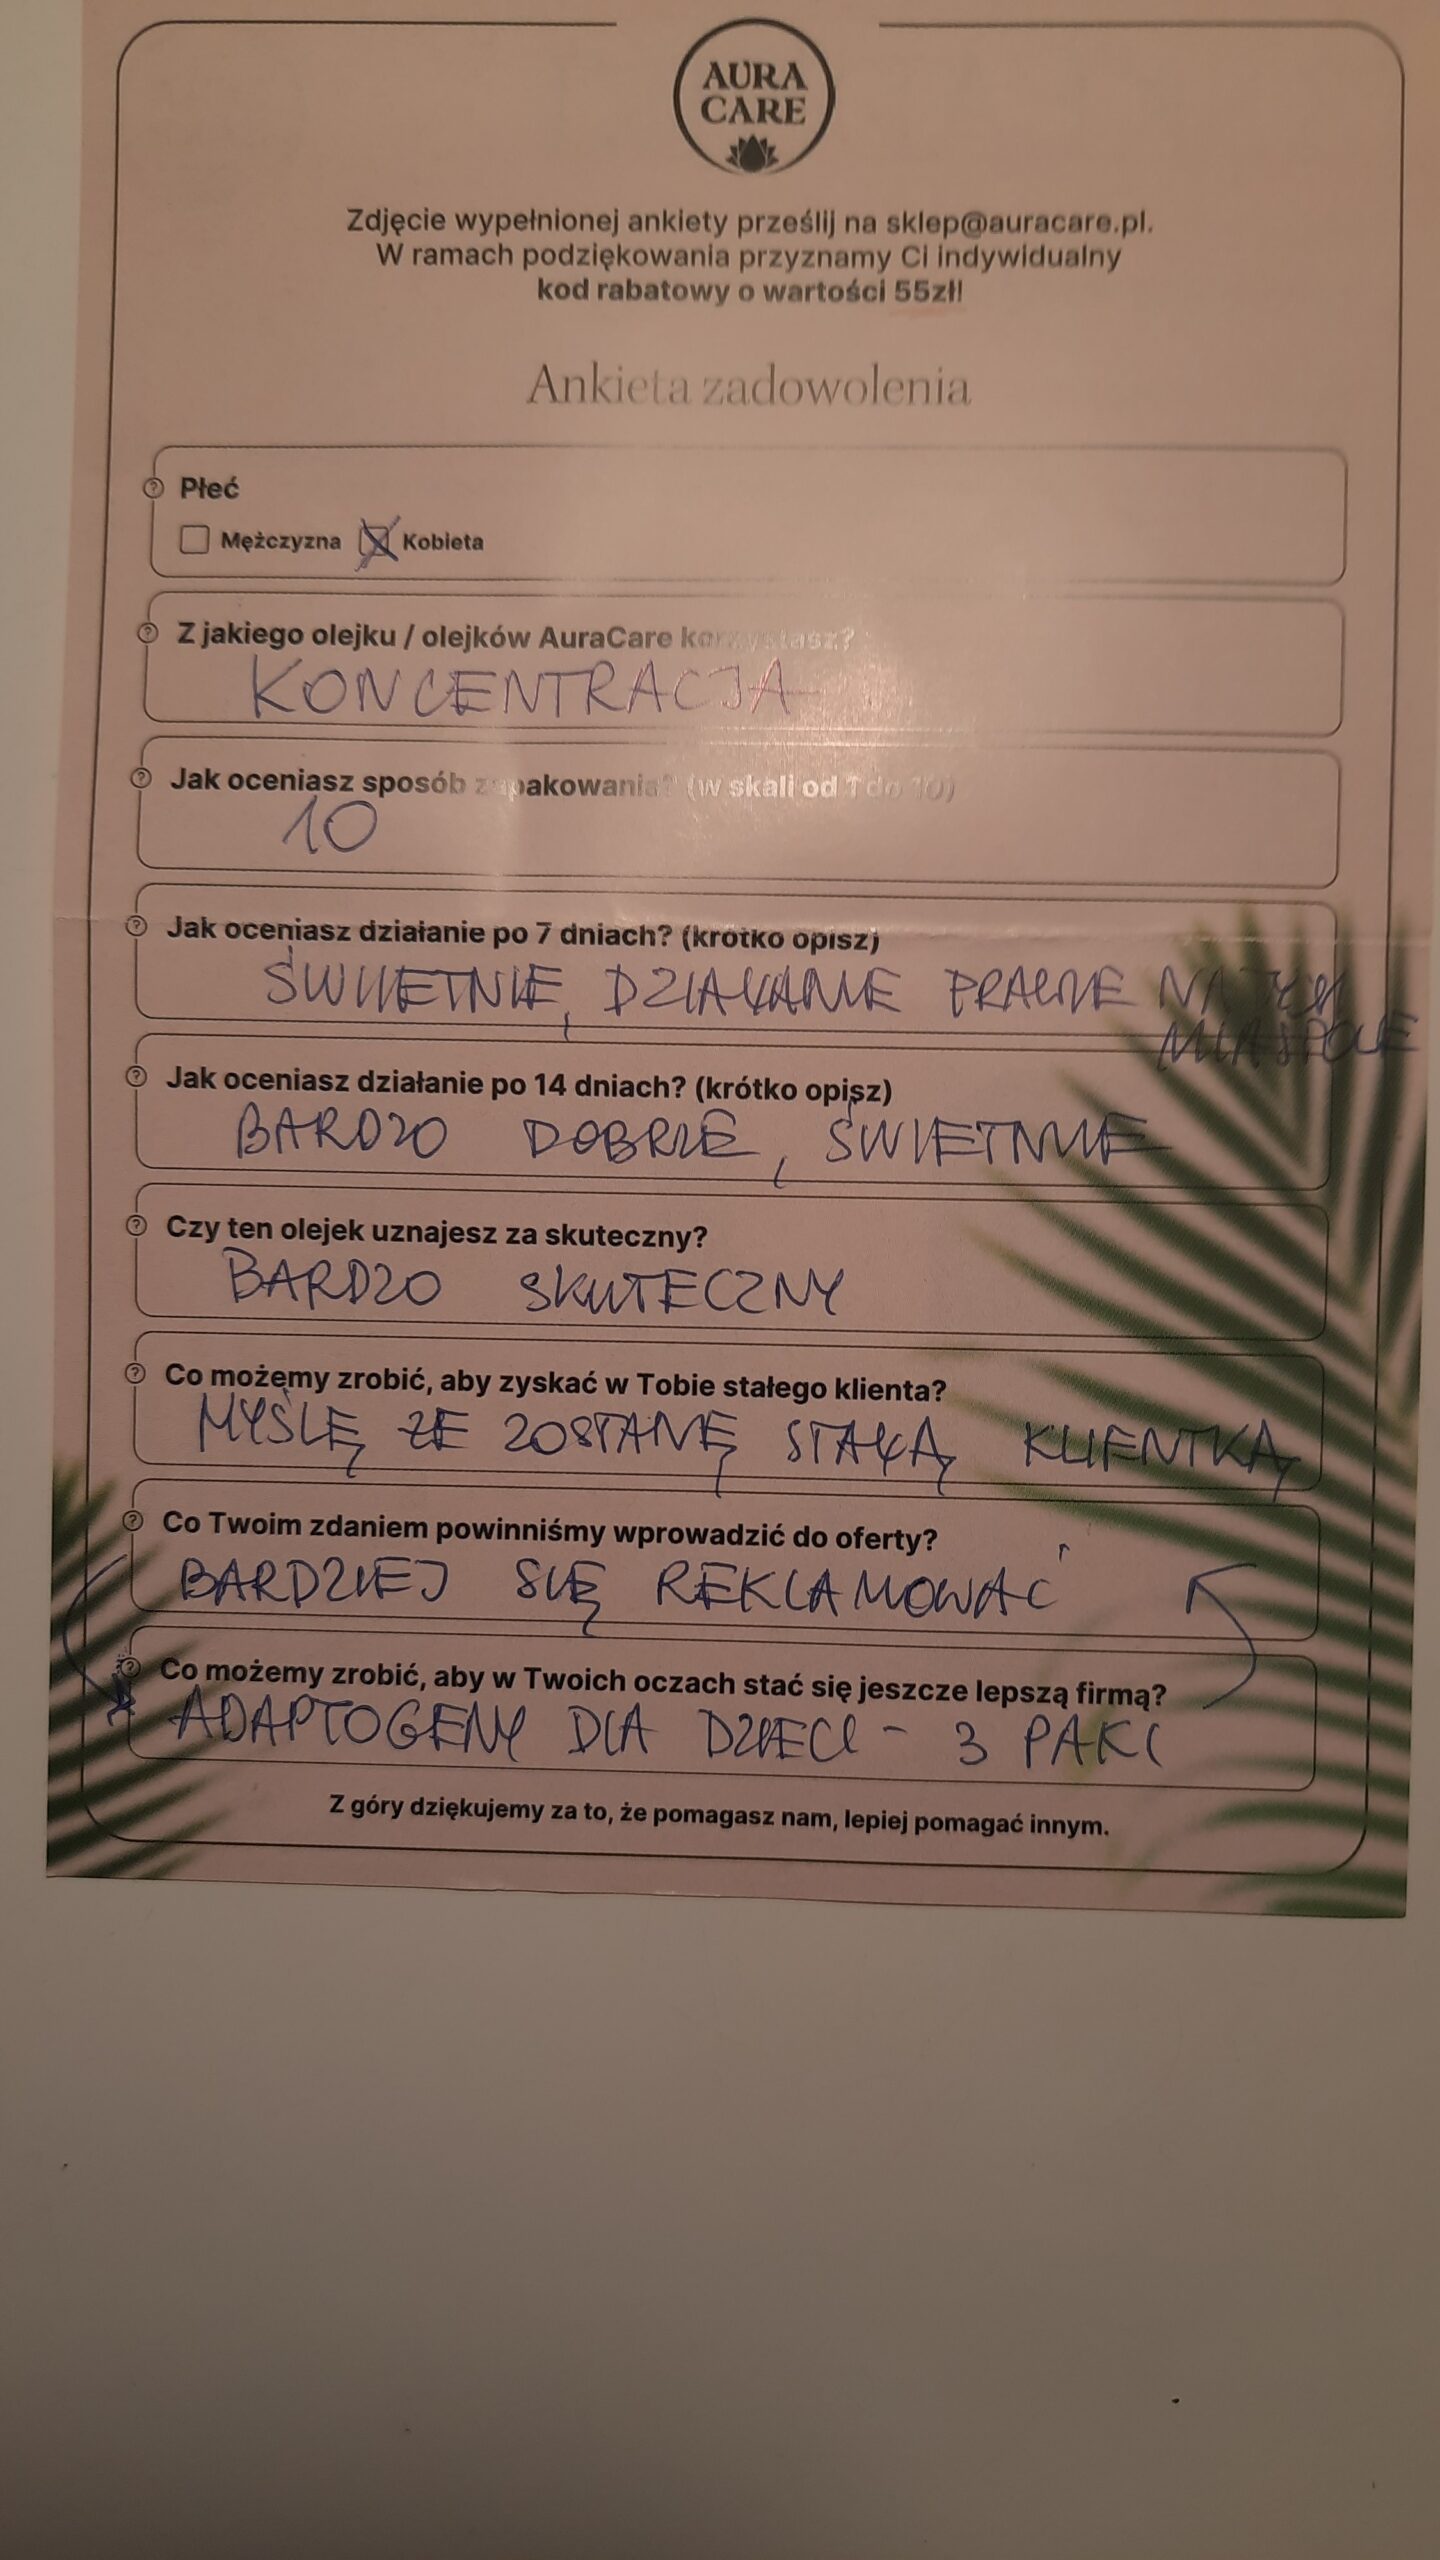 AURA
CARE
Zdjęcie wypełnionej ankiety prześlij na sklep@auracare.pl.
W ramach podziękowania przyznamy Ci indywidualny
kod rabatowy o wartości 55zł!
Ankieta zadowolenia
Płeć
Mężczyzna Kobieta
Z jakiego olejku / olejków AuraCare korzystasz?
KONCENTRACJA
Jak oceniasz sposób zapakowania? (w skali od 1 do 10)
10
Jak oceniasz działanie po 7 dniach? (krótko opisz)
ŚWIETNIE, DZIAŁANIE PRAWIE NATYCH
MIASTOWE
Jak oceniasz działanie po 14 dniach? (krótko opisz)
BARDZO DOBRZE, ŚWIETNIE
Czy ten olejek uznajesz za skuteczny?
BARDZO SKUTECZNY
Co możemy zrobić, aby zyskać w Tobie stałego klienta?
MYŚLĘ ŻE ZOSTANĘ STAŁĄ KLIENTKĄ
Co Twoim zdaniem powinniśmy wprowadzić do oferty?
BARDZIEJ SIĘ REKLAMOWAĆ
Co możemy zrobić, aby w Twoich oczach stać się jeszcze lepszą firmą?
ADAPTOGENY DLA DZIECI - 3 PAKI
Z góry dziękujemy za to, że pomagasz nam, lepiej pomagać innym.